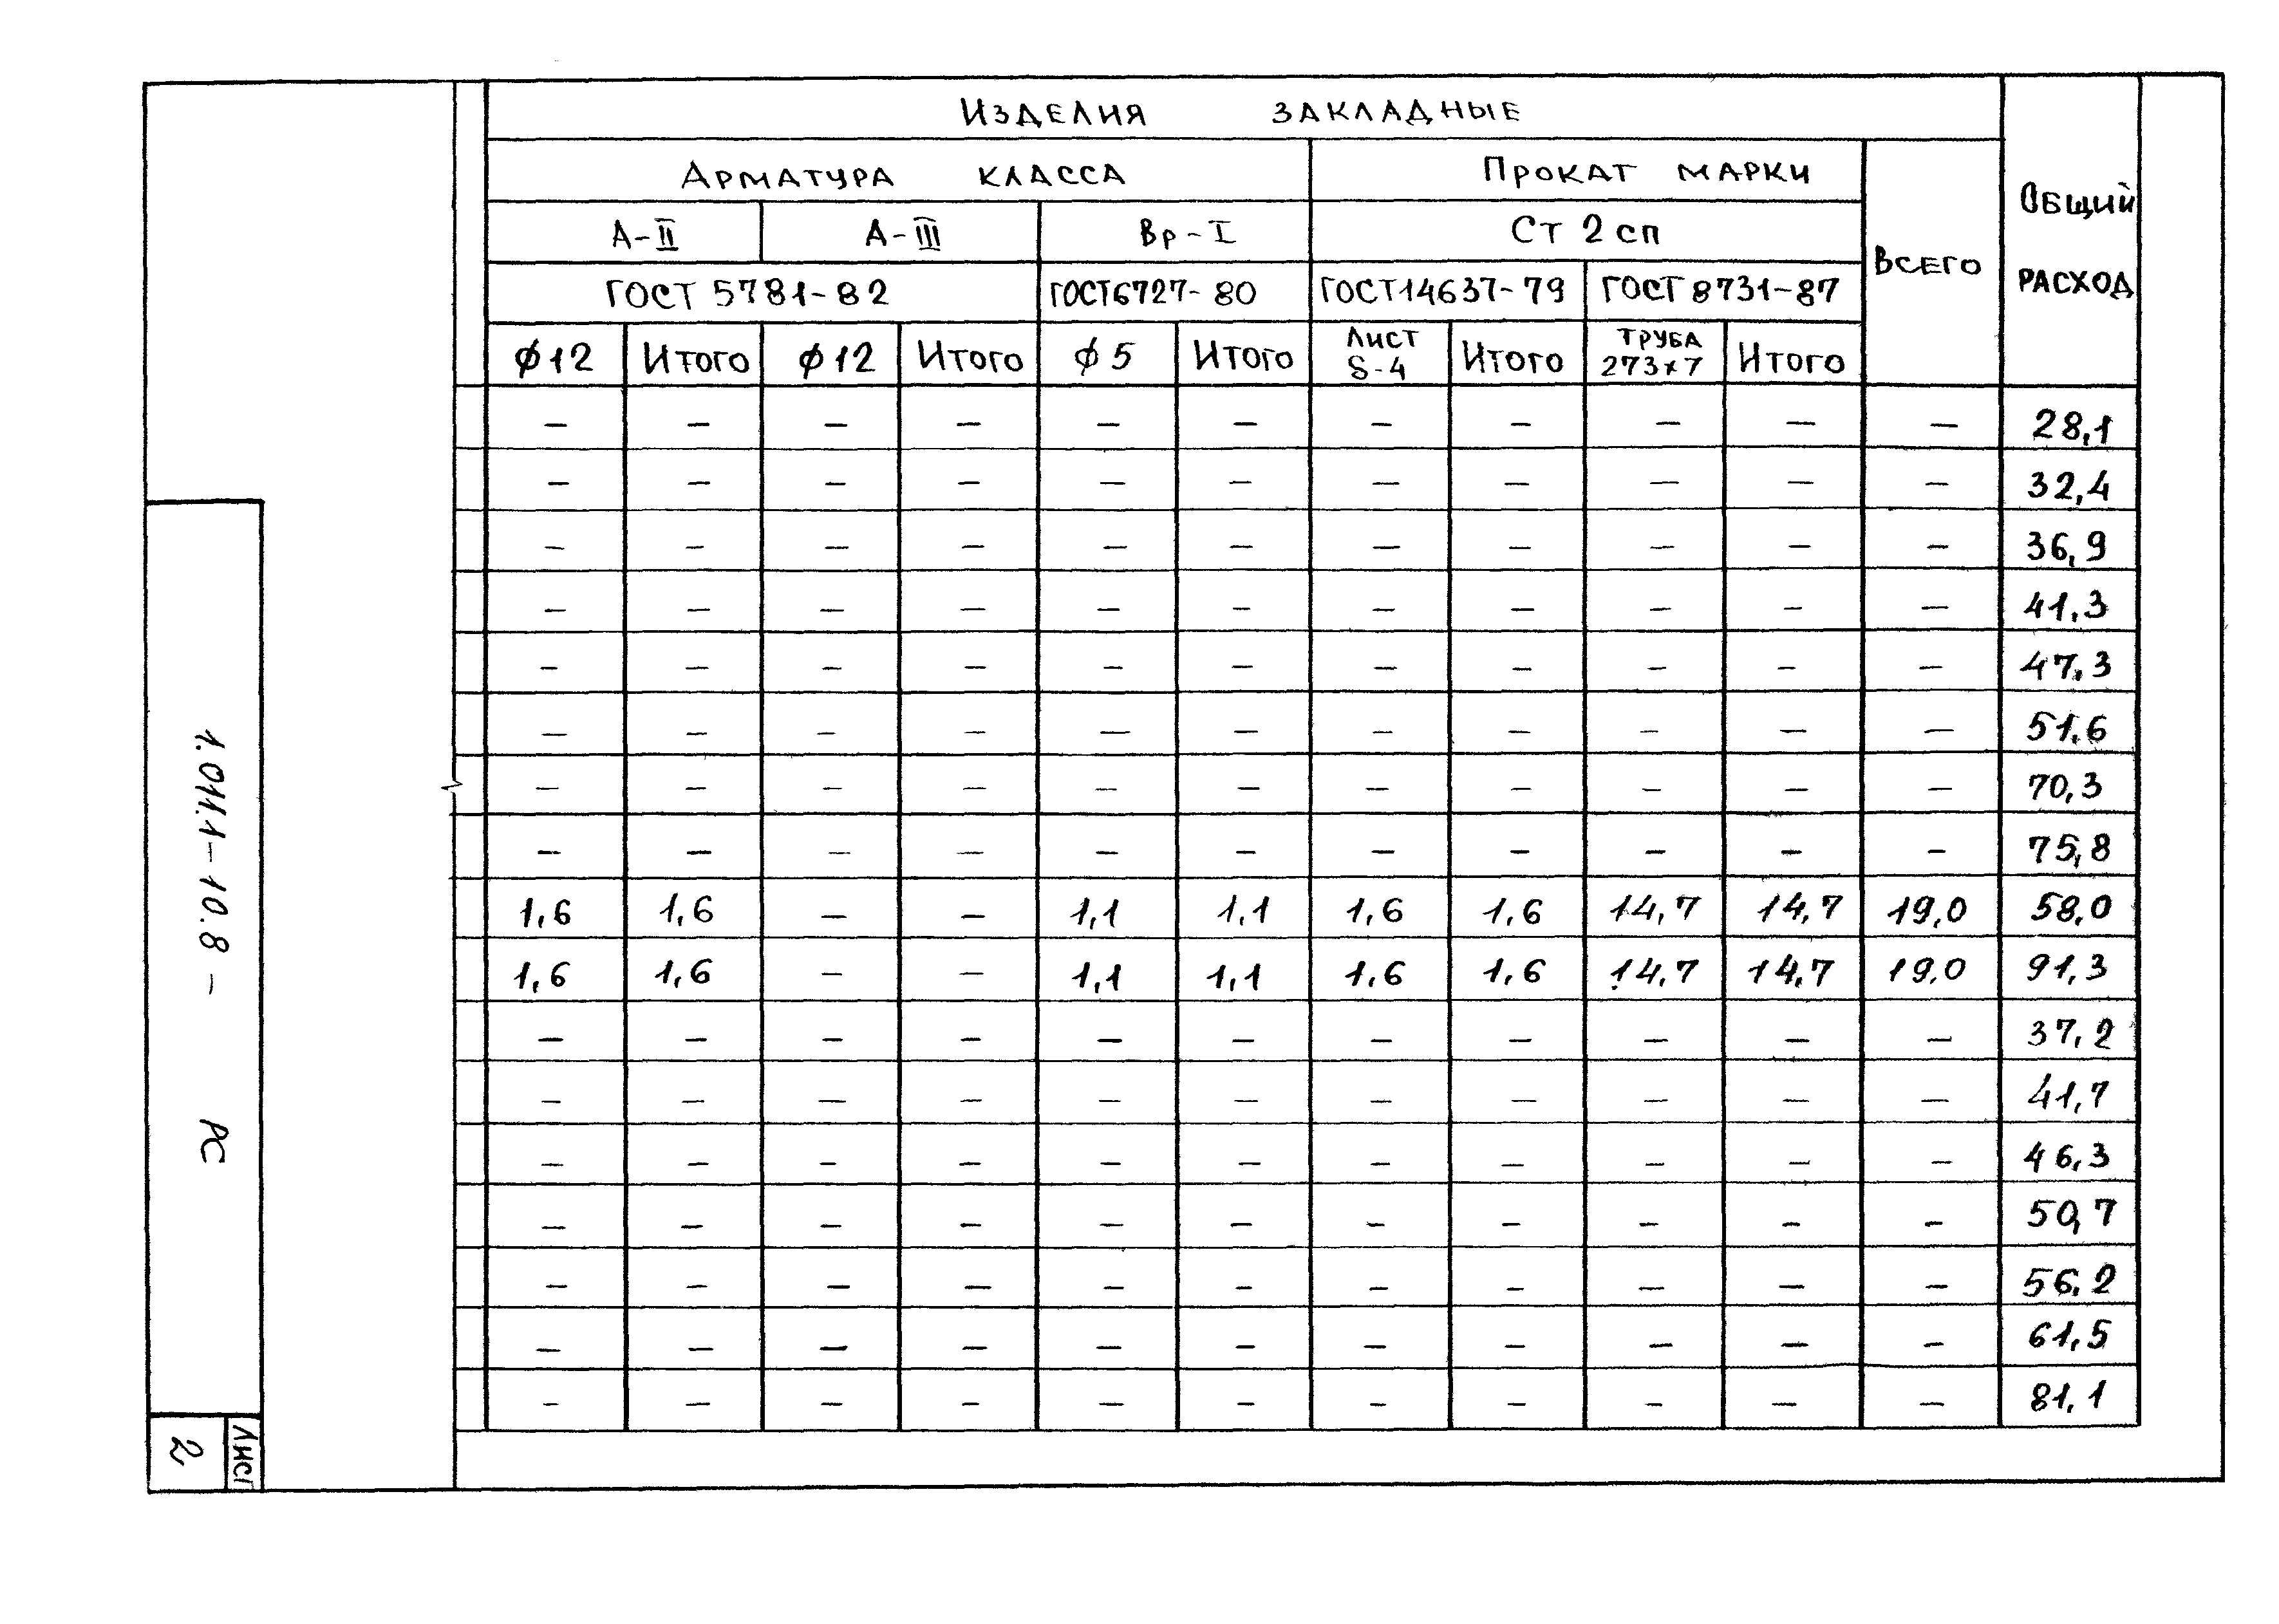 Изделия закладные
Арматура класса Прокат марки Всего Общий расход
А-II А-III Вр-I Ст 2 сп
ГОСТ 5781-82 ГОСТ 6727-80 ГОСТ 14637-79 ГОСТ 8731-87
ϕ12 Итого ϕ12 Итого ϕ5 Итого Лист S-4 Итого Труба 273×7 Итого
– – – – – – – – – – – 28,1
– – – – – – – – – – – 32,4
– – – – – – – – – – – 36,9
– – – – – – – – – – – 41,3
– – – – – – – – – – – 47,3
– – – – – – – – – – – 51,6
– – – – – – – – – – – 70,3
– – – – – – – – – – – 75,8
1,6 1,6 – – 1,1 1,1 1,6 1,6 14,7 14,7 19,0 58,0
1,6 1,6 – – 1,1 1,1 1,6 1,6 14,7 14,7 19,0 91,3
– – – – – – – – – – – 37,2
– – – – – – – – – – – 41,7
– – – – – – – – – – – 46,3
– – – – – – – – – – – 50,7
– – – – – – – – – – – 56,2
– – – – – – – – – – – 61,5
– – – – – – – – – – – 81,1
1.011.1-10.8 - РС
Лист
2